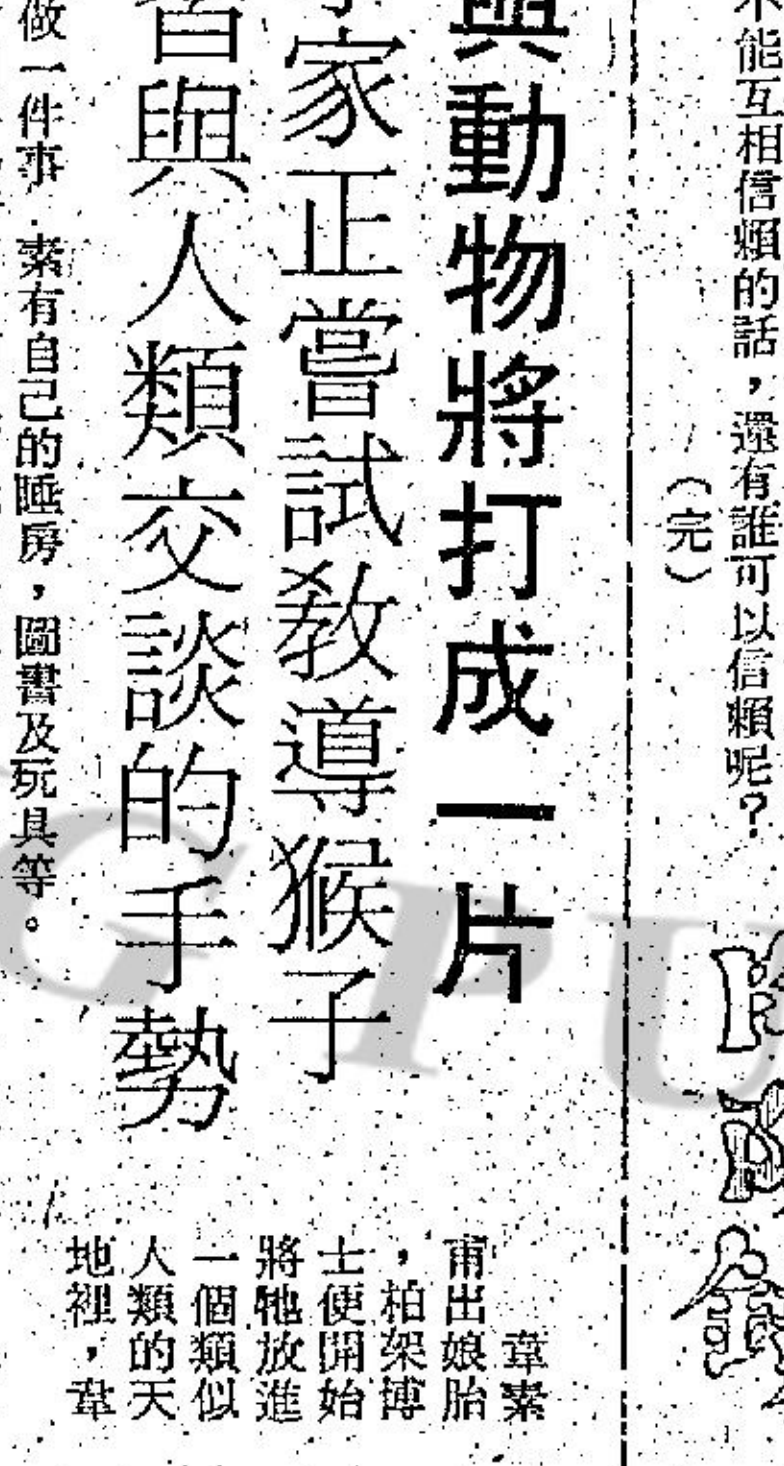 不能互相信賴的話，還有誰可以信賴呢？
（完）
與動物將打成一片
家正嘗試教導猴子
習與人類交談的手勢
韋素
甫出娘胎
，柏架博
士便開始
將牠放進
一個類似
人類的天
地裡，韋
做一件事．素有自己的睡房，圖書及玩具等。
G PU